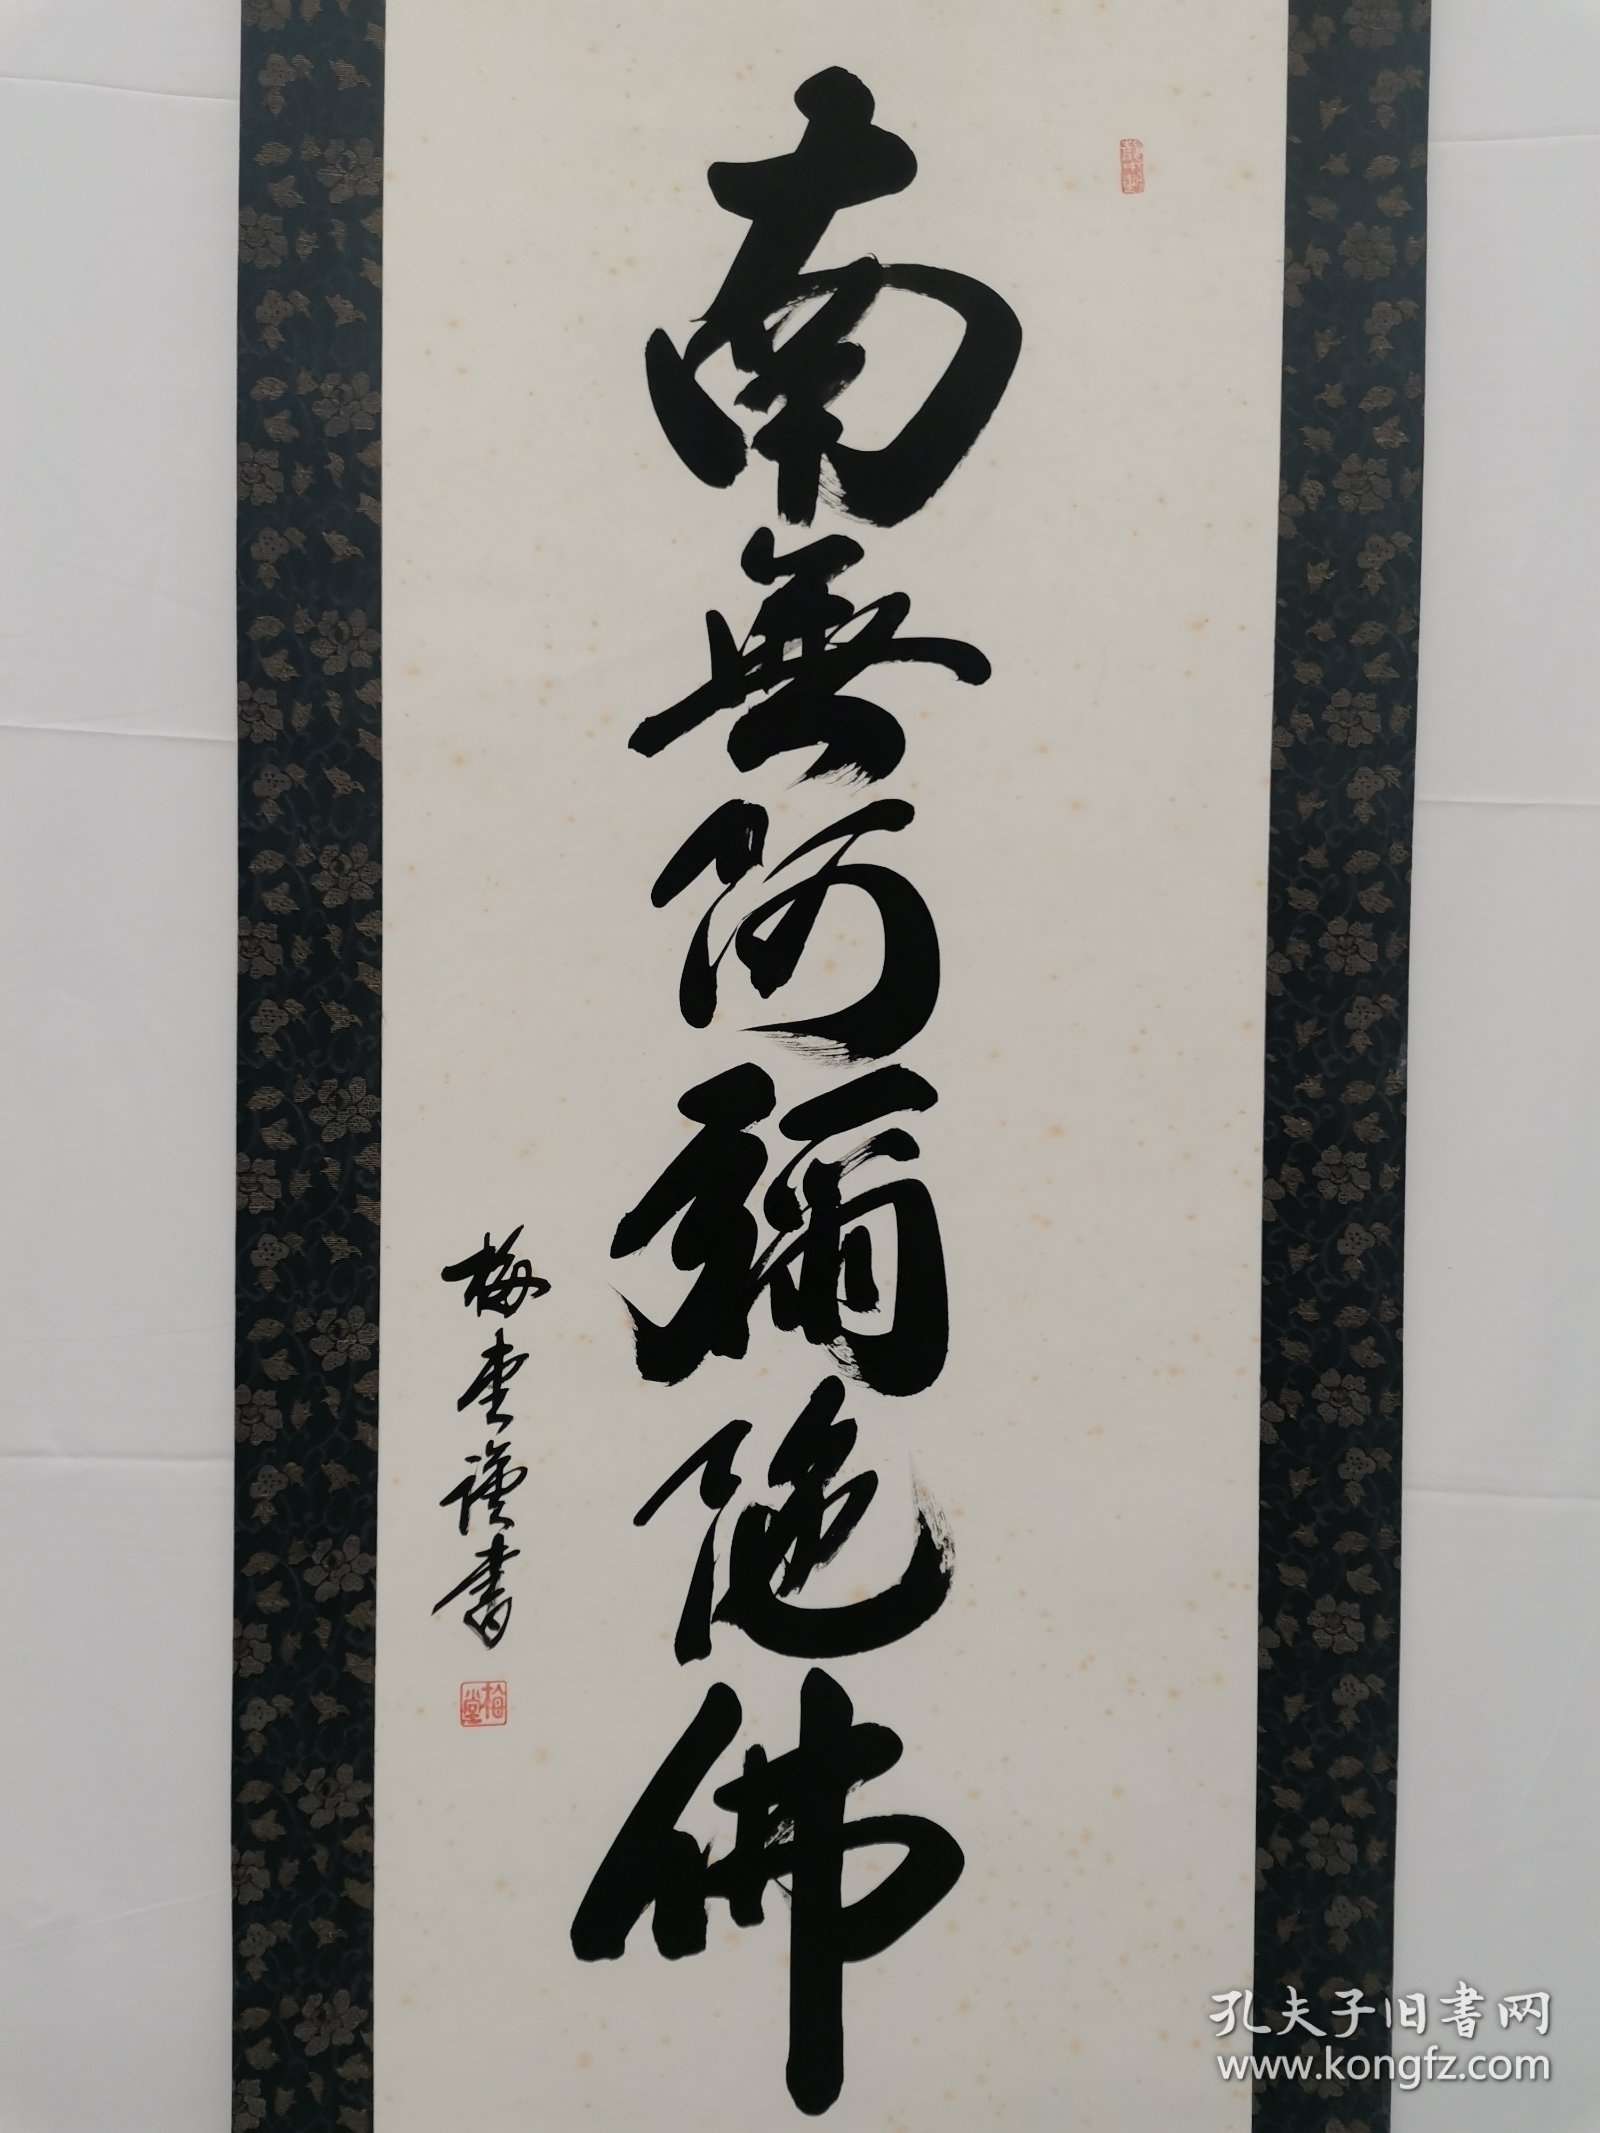 南無阿彌陀佛
梅堂謹書
梅堂
孔夫子旧书网
www.kongfz.com